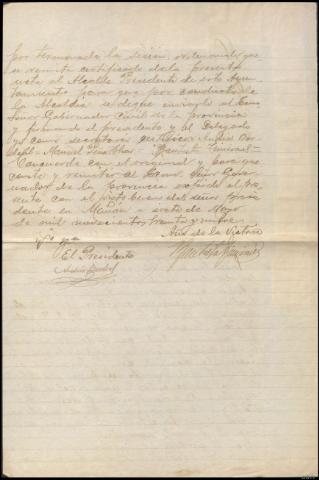 por terminada la sesión, ordenando que
se remita certificado de la presente
acta al Alcalde Presidente de este Ayun-
tamiento para que por conducto de
la Alcaldía se digne enviarlo al Excmo
Señor Gobernador Civil de la provincia
y firmando el presidente y el Delegado
yo como secretario certifico
Manuel
Concuerda con el original y para que
conste y remitir al Excmo. Señor Gober-
nador de la Provincia expido el pre-
sente con el visto bueno del señor presi-
dente en a siete de Mayo
de mil novecientos treinta y nueve.
Año de la Victoria
El Presidente